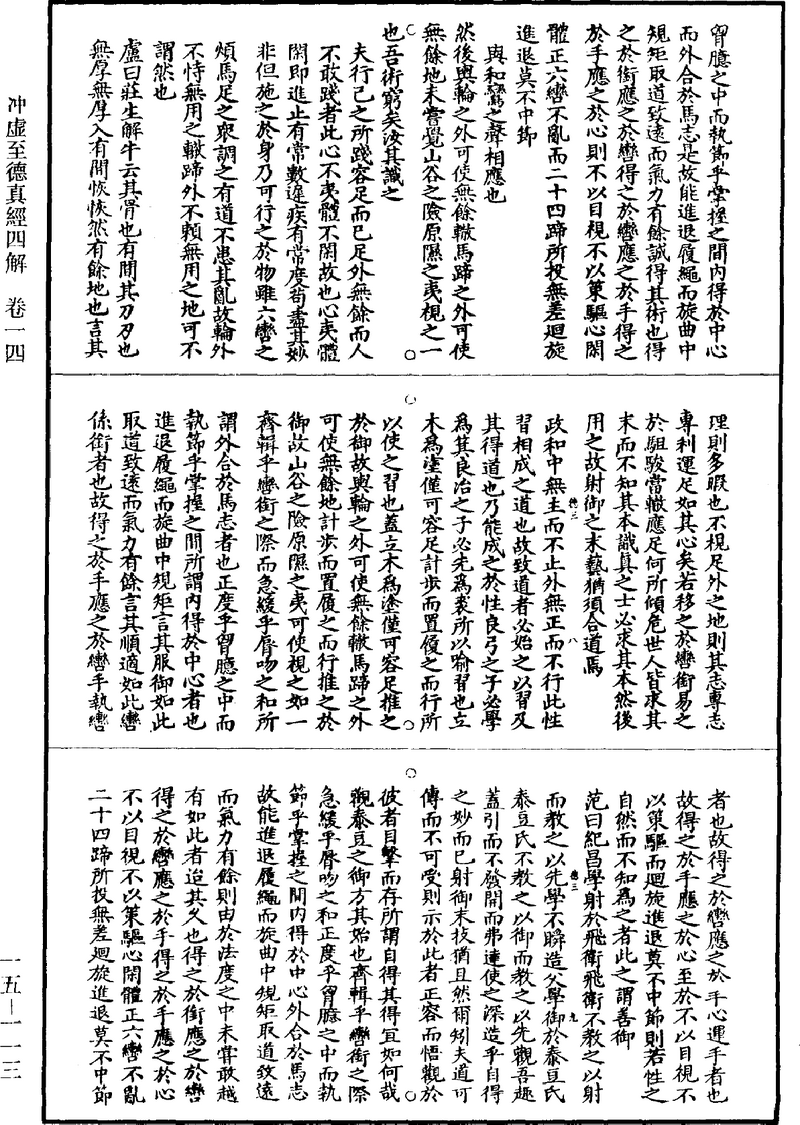 胷臆之中而執節乎掌握之間内得於中心
而外合於馬志是故能進退履繩而旋曲中
規矩取道致遠而氣力有餘誠得其術也得
之於銜應之於轡得之於轡應之於手得之
於手應之於心則不以目視不以策驅心閑
體正六轡不亂而二十四蹄所投無差廻旋
進退莫不中節
與和鸞之聲相應也
然後輿輪之外可使無餘轍馬蹄之外可使
無餘地未嘗覺山谷之險原隰之夷視之一
也吾術窮矣汝其識之
夫行已之所踐容足而已足外無餘而人
不敢踐者此心不夷體不閑故也心夷體
閑即進止有常數遲疾有常度苟盡其妙
非但施之於身乃可行之於物雖六轡之
煩馬足之衆調之有道不患其亂故輪外
不恃無用之轍蹄外不賴無用之地可不
謂然也
盧曰莊生解牛云其骨也有間其刀刃也
無厚無厚入有間恢恢然有餘地也言其
冲虚至德真經四解 卷一四
理則多暇也不視足外之地則其志專志
專利運足如其心矣若移之於轡銜易之
於駔駿當轍應足何所傾危世人皆求其
末而不知其本識真之士必求其本然後
用之故射御之末藝猶須合道焉
政和中無主而不止外無正而不行此性
習相成之道也故致道者必始之以習及
其得道也乃能成之於性良弓之子必學
爲其良冶之子必先爲裘所以喻習也立
木爲塗僅可容足計步而置履之而行所
以使之習也蓋立木爲塗僅可容足推之
於御故輿輪之外可使無餘轍馬蹄之外
可使無餘地計步而置履之而行推之於
御故山谷之險原隰之夷可使視之如一
齊輯乎轡銜之際而急緩乎脣吻之和所
謂外合於馬志者也正度乎胷臆之中而
執節乎掌握之間所謂内得於中心者也
進退履繩而旋曲中規矩言其服御如此
取道致遠而氣力有餘言其順適如此轡
係銜者也故得之於手應之於轡手執轡
者也故得之於轡應之於手心運手者也
故得之於手應之於心至於不以目視不
以策驅而廻旋進退莫不中節則若性之
自然而不知爲之者此之謂善御
范曰紀昌學射於飛衛飛衛不教之以射
而教之以先學不瞬造父學御於泰豆氏
泰豆氏不教之以御而教之以先觀吾趣
蓋引而不發開而弗達使之深造乎自得
之妙而已射御末技猶且然爾矧夫道可
傳而不可受則示於此者正容而悟觀於
彼者目擊而存所謂自得其得宜如何哉
觀泰豆之御方其始也齊輯乎轡銜之際
急緩乎脣吻之和正度乎胷臆之中而執
節乎掌握之間内得於中心外合於馬志
故能進退履繩而旋曲中規矩取道致遠
而氣力有餘則由於法度之中未嘗敢越
有如此者迨其久也得之於銜應之於轡
得之於轡應之於手得之於手應之於心
不以目視不以策驅心閑體正六轡不亂
二十四蹄所投無差廻旋進退莫不中節
一五—一一三